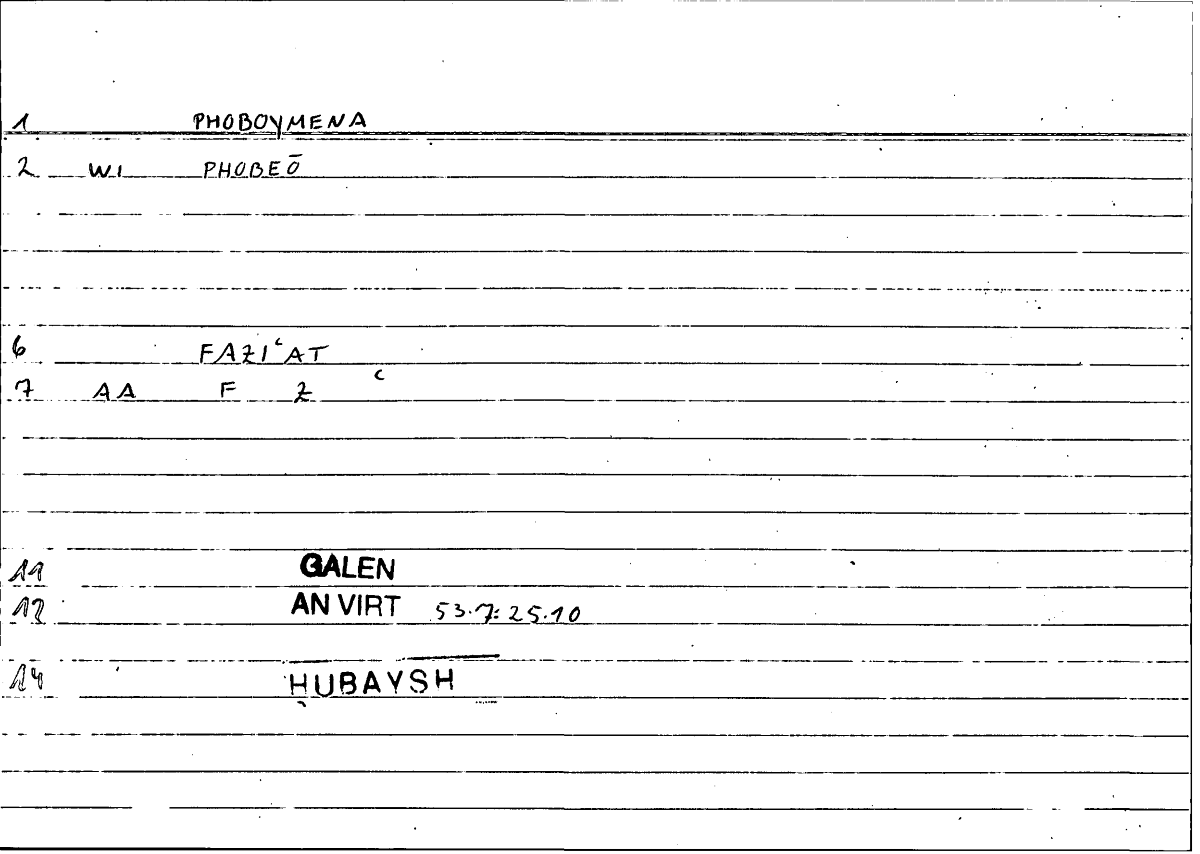 1 PHOBOYMENA
2 WI PHOBEŌ
6 FAZIʿAT
7 AA F Z ʿ
11 GALEN
12 AN VIRT 53.7:25.10
14 ḤUBAYSH